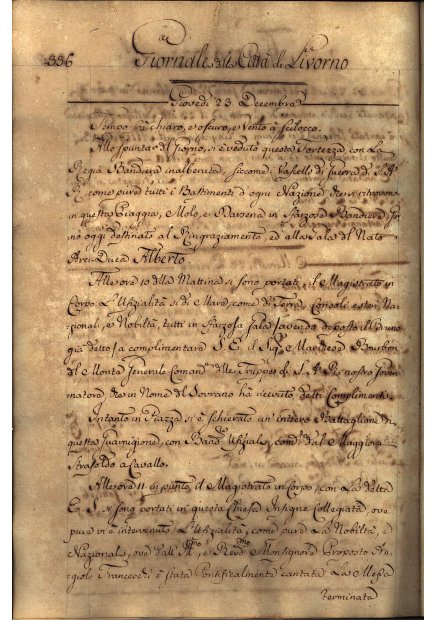 336 Giornale della Città di Livorno
Giovedì 23 Decembre
Tempo frà chiaro, e oscuro, e Vento à Scilocco.
Allo spuntar del Giorno, si è veduto questa Fortezza con La
Regia Bandiera inalberata, siccome i Vascelli di Guerra di S. A.
R. come pure tutti i Bastimenti d'ogni Nazione che si ritrovono
in questa Spiaggia, Molo, e Darsena in sfarzose Bandiere, gior
no oggi destinato al Ringraziamento, ed alla Gala del Nato
Arci-Duca Alberto.
All'ore 10 della Mattina si sono portati il Magistrato in
Corpo L'Ufizialità sì di Mare, come di Terra, Consoli esteri, Na-
zionali, e Nobiltà, tutti in sfarzosa Gala
già detto a complimentare S. E. il Sigr. Marchese Bourbon
del Monte Generale Comandte. delle Truppe di S. A. R. nostro Gover
natore, che in Nome del Sovrano ha ricevuto detti Complimenti.
Intanto in Piazza si è schierato un'intiero Battaglione di
questa Guarnigione, con Band. Ufizial. com. dal Maggior
Strasoldo a Cavallo.
All'ore 11 in punto il Magistrato in Corpo, con La detta
E. S. si sono portati in questa Chiesa Insigne Collegiata, ove
pure vi è intervenuto L'Ufizialità, come pure La Nobiltà, e
Nazionali, ove dall' Illmo. e Revdmo. Monsignore Proposto An-
giolo Franceschi è stata Pontificalmente cantata La Messa
terminata